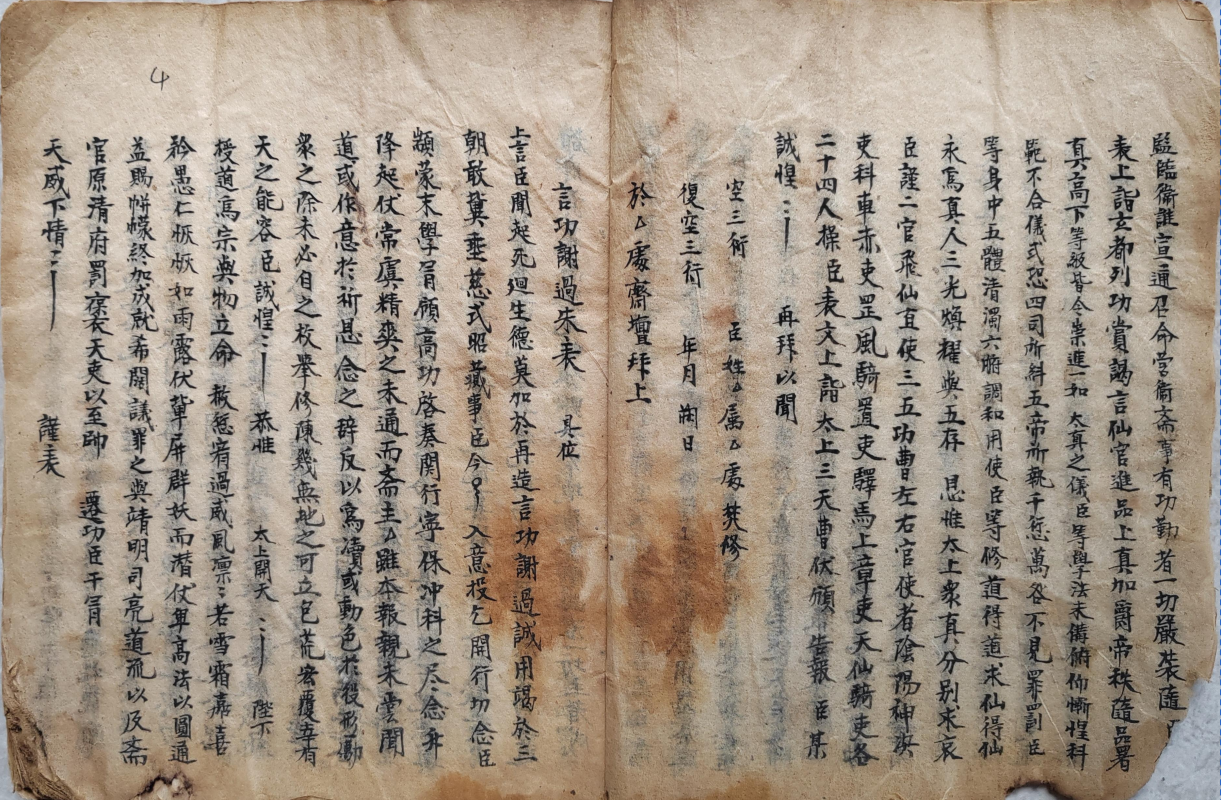 監臨衛誰宣通召命营衛斋事有功勤者一切嚴裝隨
表上詣玄都列功賞謁言仙官進品上真加爵帝秩隨品署
真高下等級昔令崇進一如 太真之儀臣等學法未備俯仰慚惶科
範不合儀式恐四司所糾五帝所執千愆萬咎不見罪罰臣
等身中五體清濁六腑調和用使臣等修道得道求仙得仙
永爲真人三光煥耀與五存 恩惟太上衆真分别求哀
臣謹二官飛仙直使三五功曹左右官使者陰陽神決
吏科車赤吏罡風騎置吏驛馬上章吏天仙騎吏各
二十四人操臣表文上詣 太上三天曹伏願告報 臣某
誠惶 再拜以聞
空三行 臣姓厶属厶處焚修
復空三行 年月 日
於厶處齋壇拜上
言功謝過朱表 具位
上言臣聞起死迴生德莫加於再造言功謝過誠用竭於三
朝敢冀垂慈式昭蕆事臣今 入意投乞開行功念臣
顓蒙末學冐願高功啓奏関行寧保冲科之尽念升
降起伏常虞精爽之未通而斋主厶雖本報親未雲聞
道或作意於祈恩念之辞反以爲凟或動色於役形勵
衆之際未必自之校舉修陳幾無地之可立包荒宏覆吾有
天之能容臣誠惶 恭惟 太上開天 陛下
授道爲宗與物立命 赦愆宥過威風凛若雪霜嘉喜
矜愚仁恢恢如雨露伏輦屏群妖而潜伏卑高法以圓通
益賜帡幪終加成就希関議罪之與靖明司亮道流以及斋
官原清府罰禀表天吏以至帥 遷功臣干冐
天威下情 謹表
4